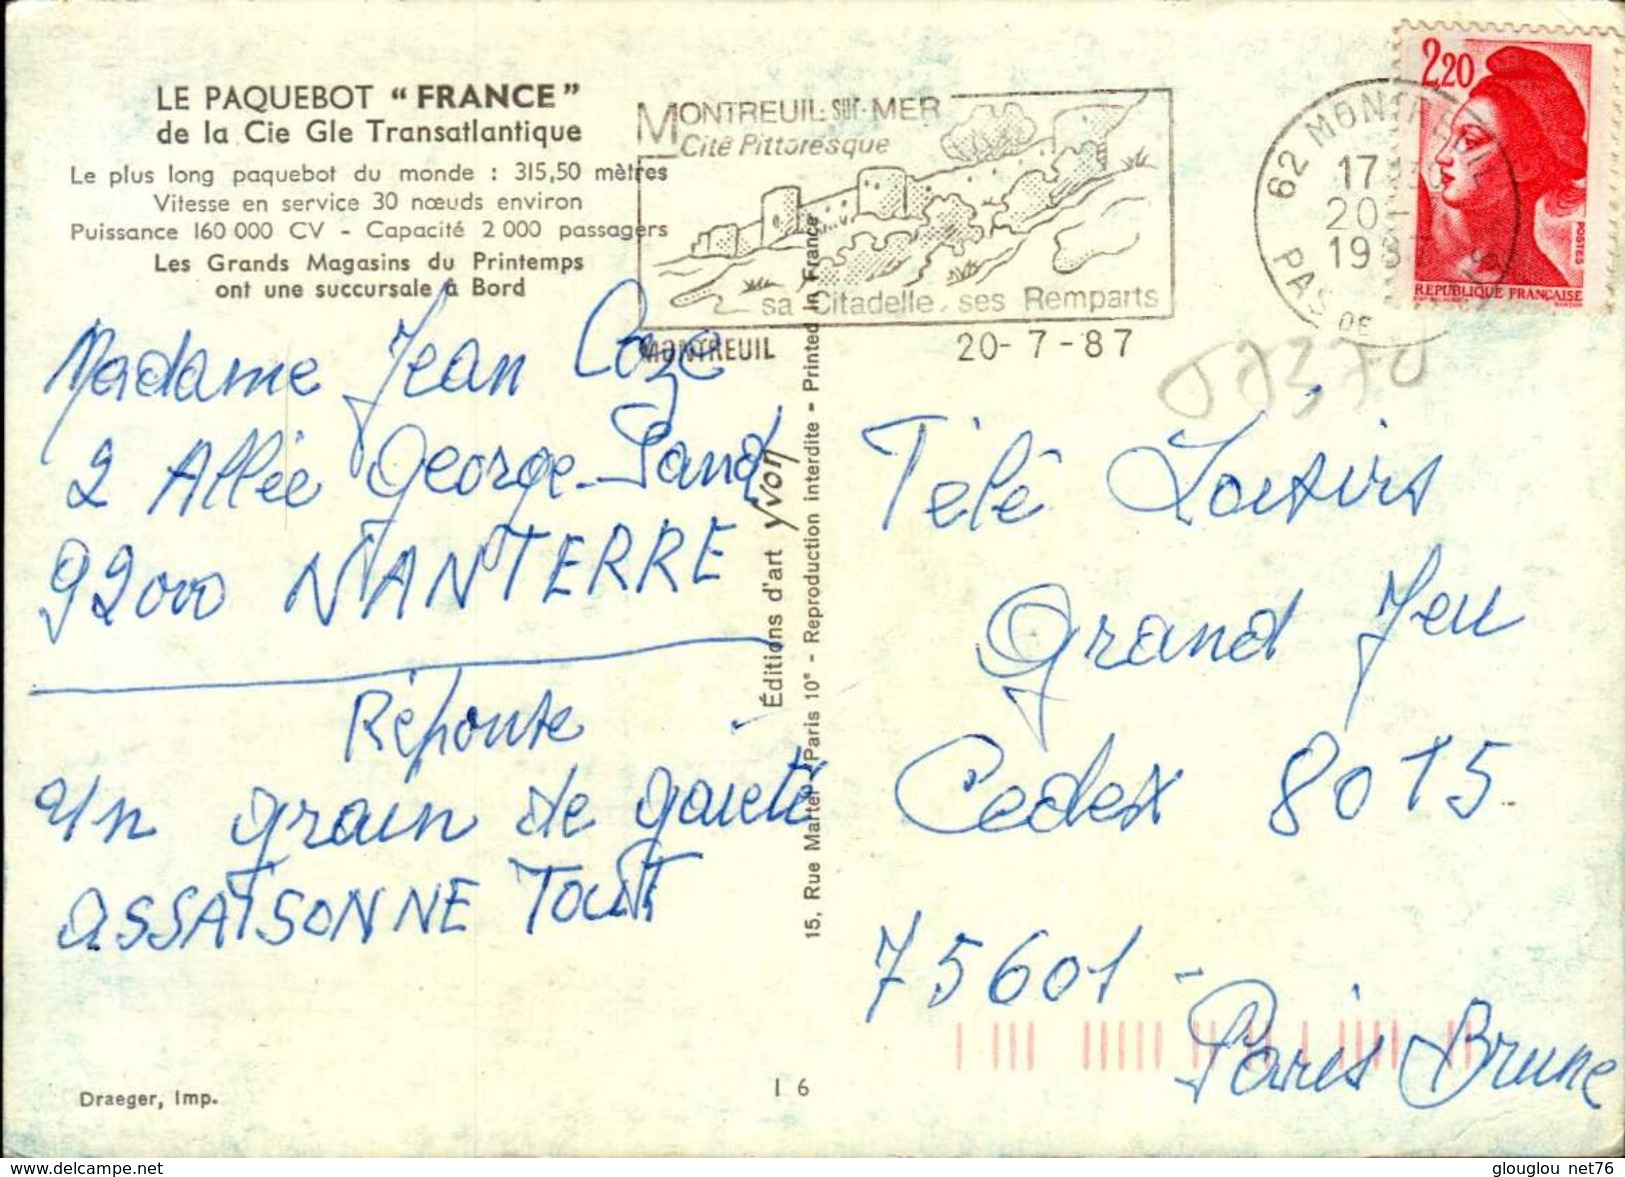 LE PAQUEBOT “FRANCE”
de la Cie Gle Transatlantique
Le plus long paquebot du monde : 315,50 mètres
Vitesse en service 30 nœuds environ
Puissance 160 000 CV - Capacité 2 000 passagers
Les Grands Magasins du Printemps
ont une succursale à Bord
MONTREUIL-SUR-MER
Cité Pittoresque
sa Citadelle, ses Remparts
MONTREUIL
20-7-87
62 MONTREUIL
17
20-
1987
PAS DE
2,20
POSTES
REPUBLIQUE FRANÇAISE
Madame Jean
2 Allée George-Sand
92000 NANTERRE
Réponse
Un grain de gaieté
ASSAISONNE TOUT
Éditions d'art Yvon
15, Rue Martel - Paris 10e - Reproduction interdite - Printed in France
Télé Loisirs
Grand Jeu
Cedex 8015
75601 -
Paris Brune
Draeger, Imp.
I 6
glouglou net76